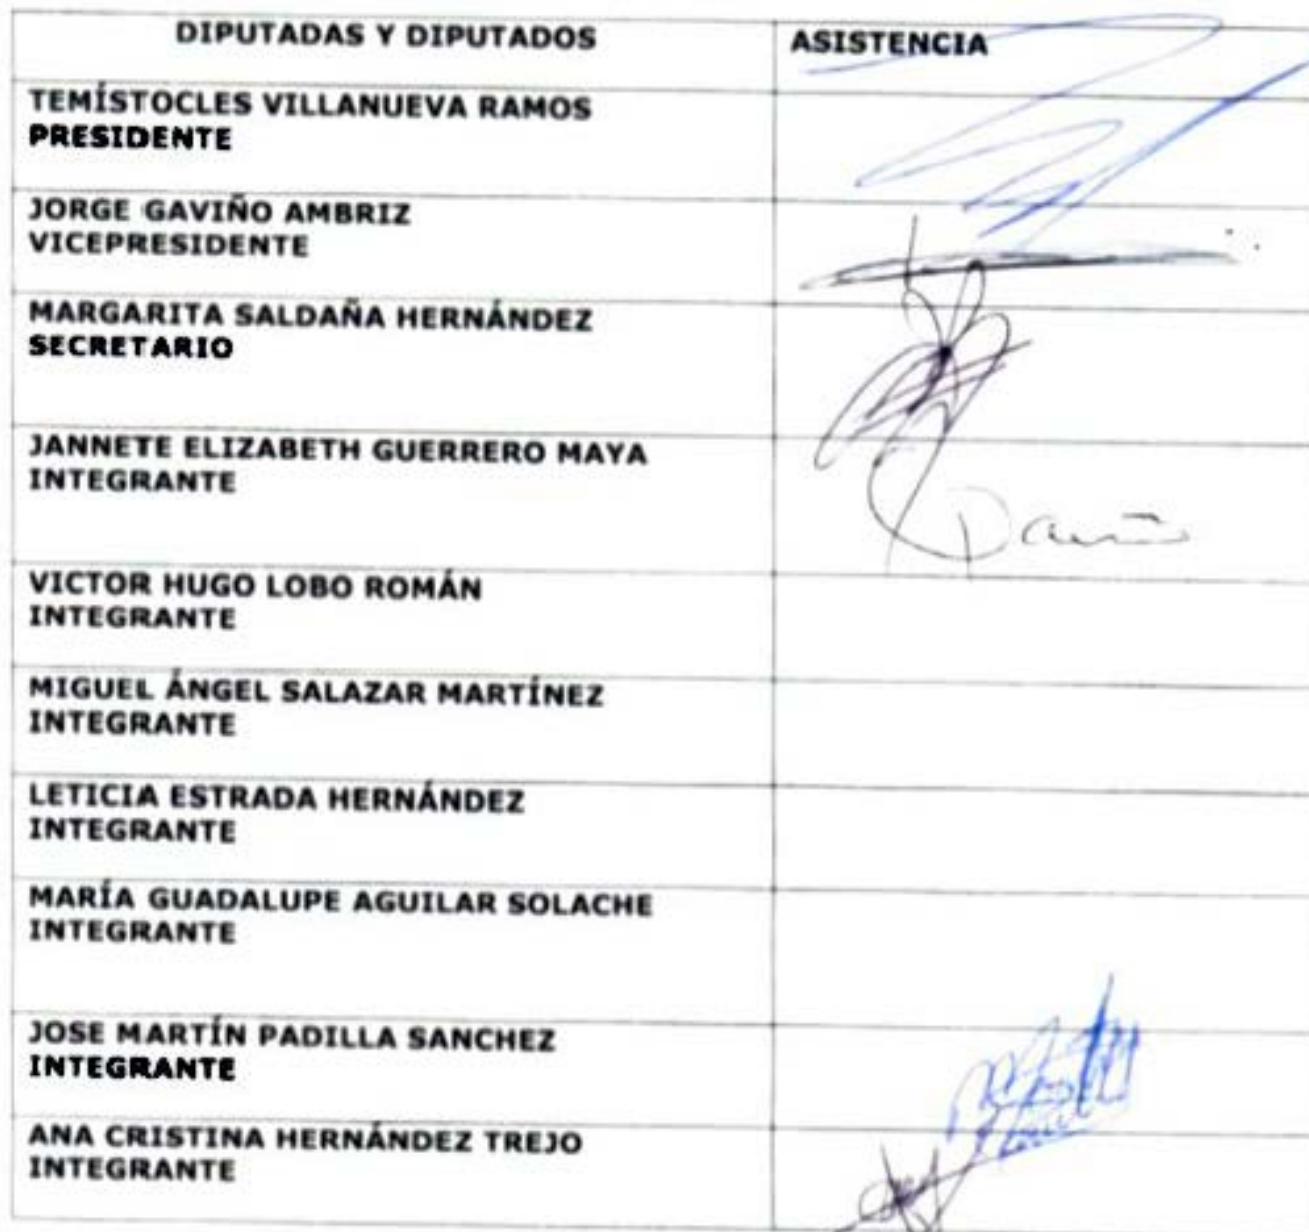 DIPUTADAS Y DIPUTADOS
ASISTENCIA
TEMÍSTOCLES VILLANUEVA RAMOS
PRESIDENTE
JORGE GAVIÑO AMBRIZ
VICEPRESIDENTE
MARGARITA SALDAÑA HERNÁNDEZ
SECRETARIO
JANNETE ELIZABETH GUERRERO MAYA
INTEGRANTE
VICTOR HUGO LOBO ROMÁN
INTEGRANTE
MIGUEL ÁNGEL SALAZAR MARTÍNEZ
INTEGRANTE
LETICIA ESTRADA HERNÁNDEZ
INTEGRANTE
MARÍA GUADALUPE AGUILAR SOLACHE
INTEGRANTE
JOSE MARTÍN PADILLA SANCHEZ
INTEGRANTE
ANA CRISTINA HERNÁNDEZ TREJO
INTEGRANTE